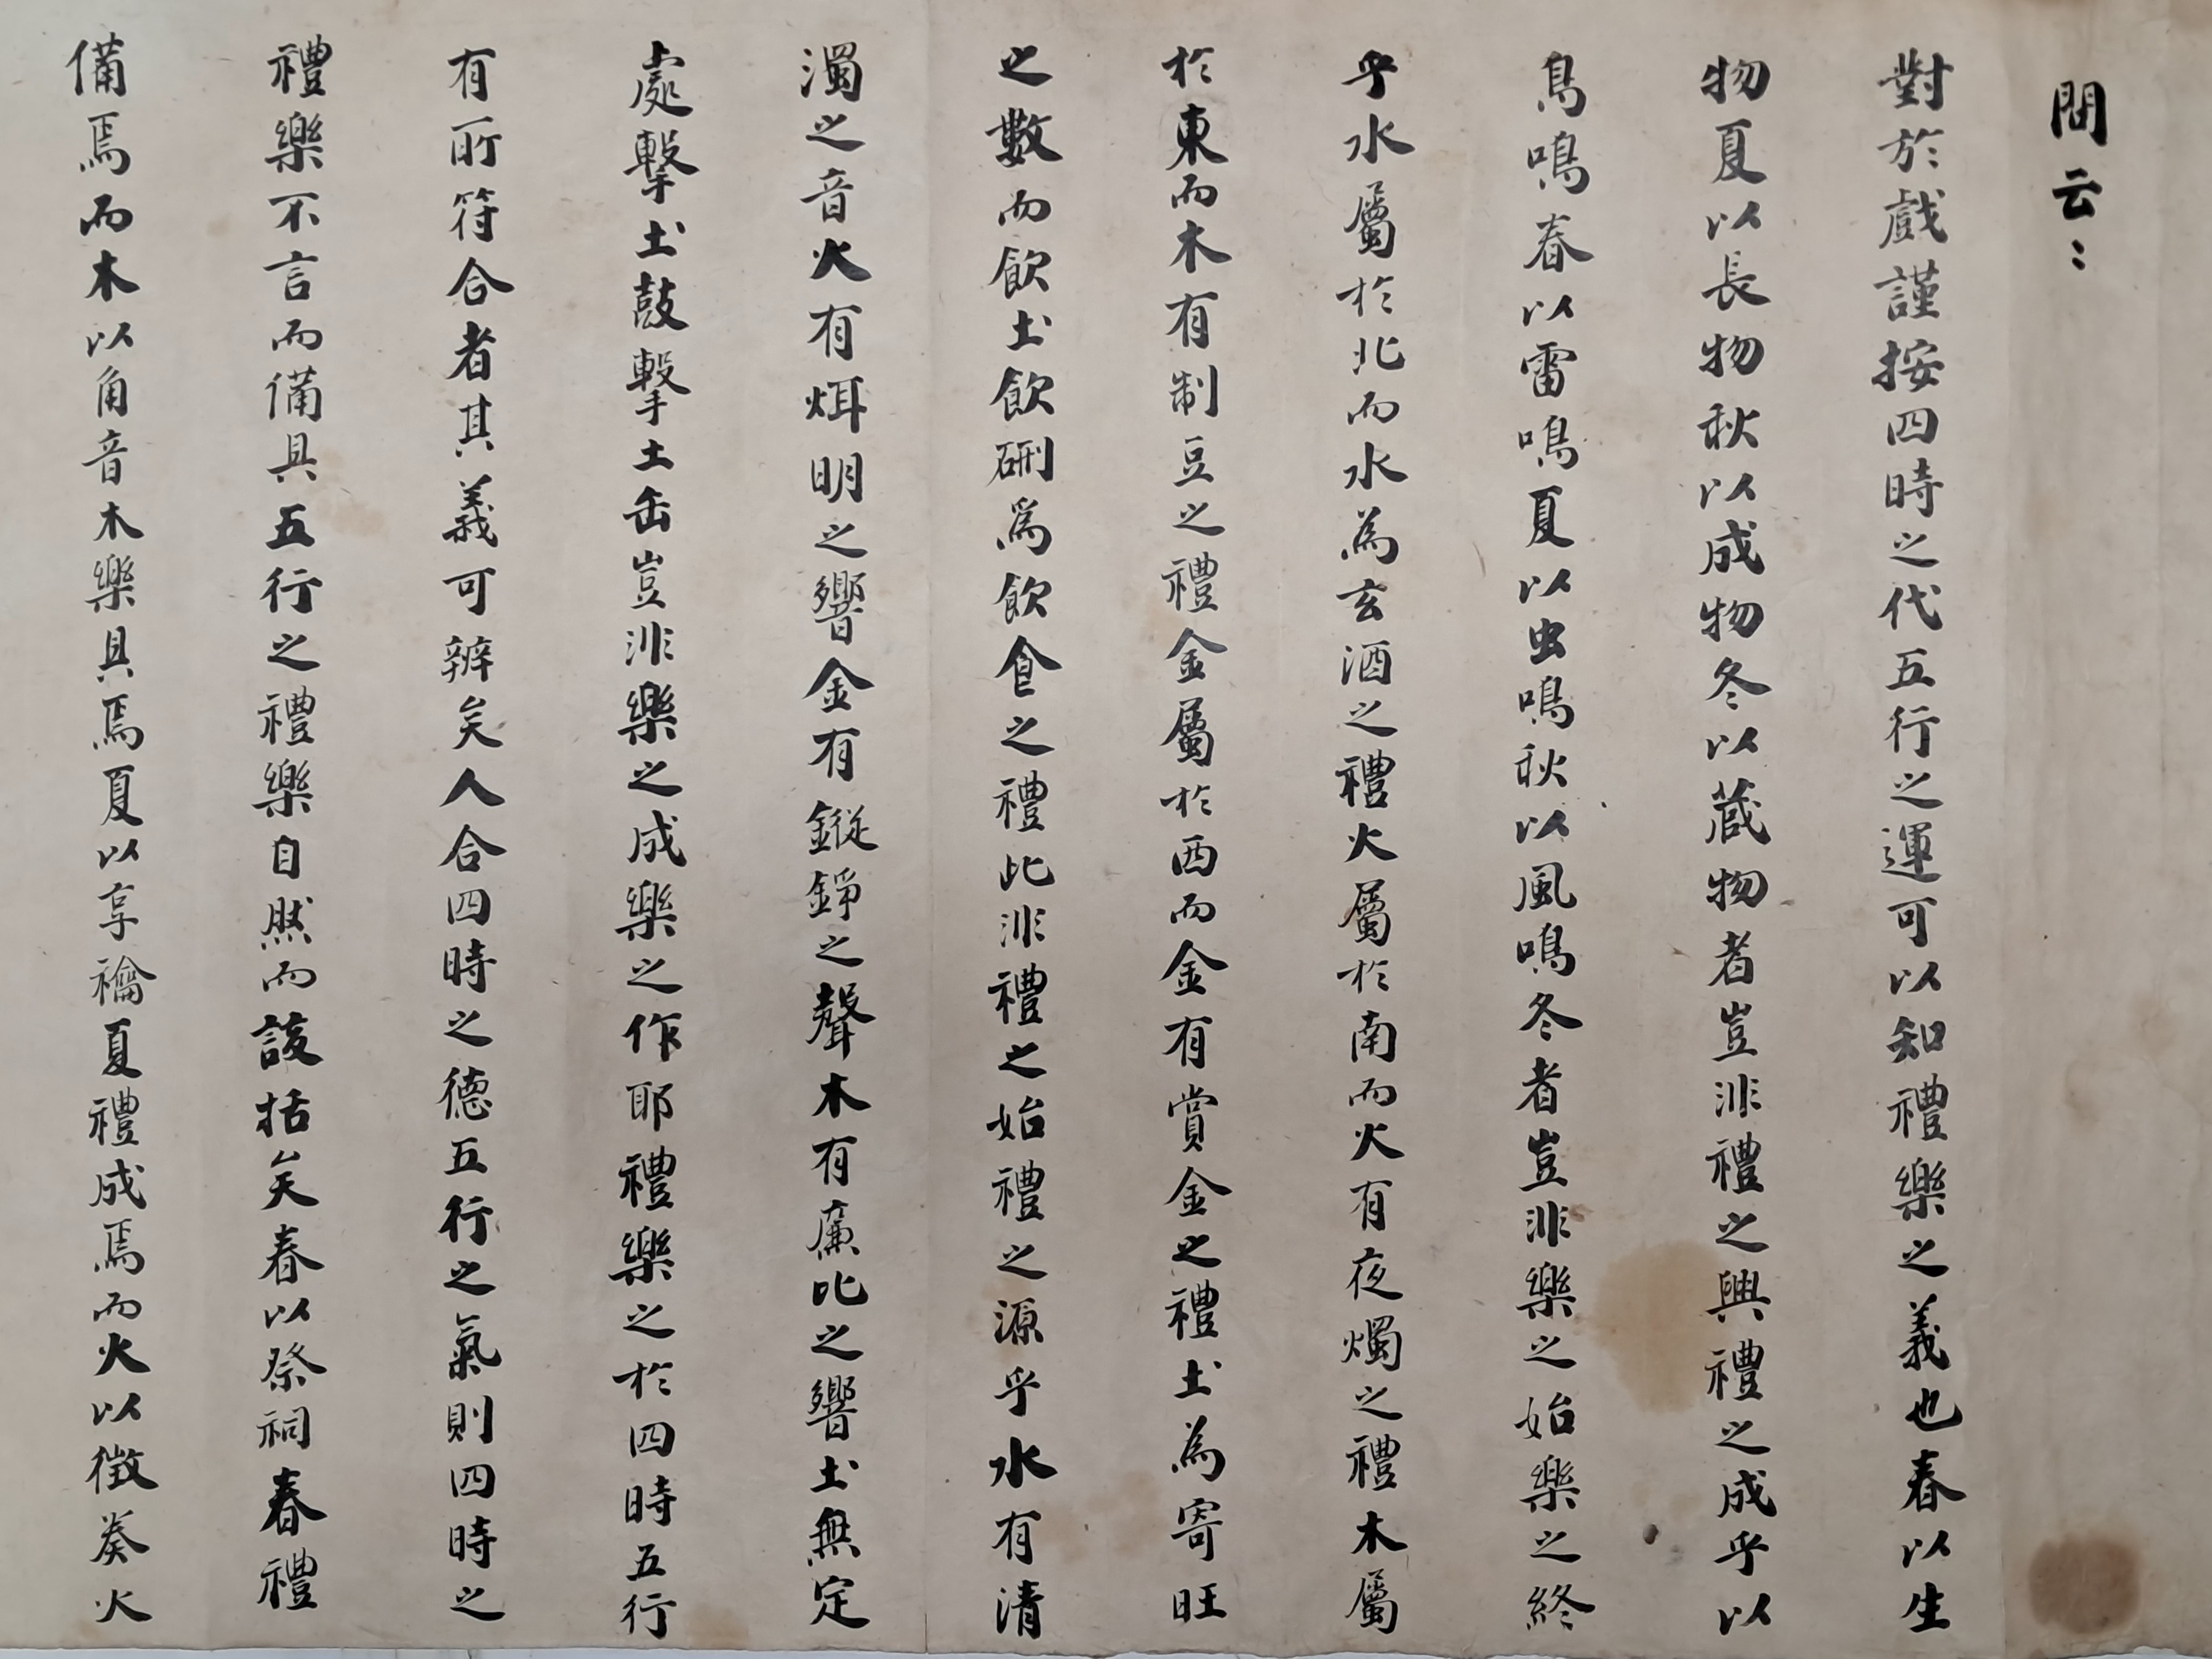 問云〻
對於戲謹按四時之代五行之運可以知禮樂之義也春以生
物夏以長物秋以成物冬以蔵物者豈非禮之興禮之成乎以
鳥鳴春以雷鳴夏以虫鳴秋以風鳴冬者豈非樂之始樂之終
乎水屬於北而水為玄酒之禮火屬於南而火有夜燭之禮木屬
於東而木有制豆之禮金屬於西而金有賞金之禮土為寄旺
之數而飮土飮硎爲飮食之禮此非禮之始禮之源乎水有清
濁之音火有烜明之響金有鏦錚之聲木有廉比之響土無定
處擊土鼓擊土缶豈非樂之成樂之作耶禮樂之於四時五行
有所符合者其義可辨矣人合四時之德五行之氣則四時之
禮樂不言而備具五行之禮樂自然而該括矣春以祭祠春禮
備焉而木以角音木樂具焉夏以享禴夏禮成焉而火以徵奏火